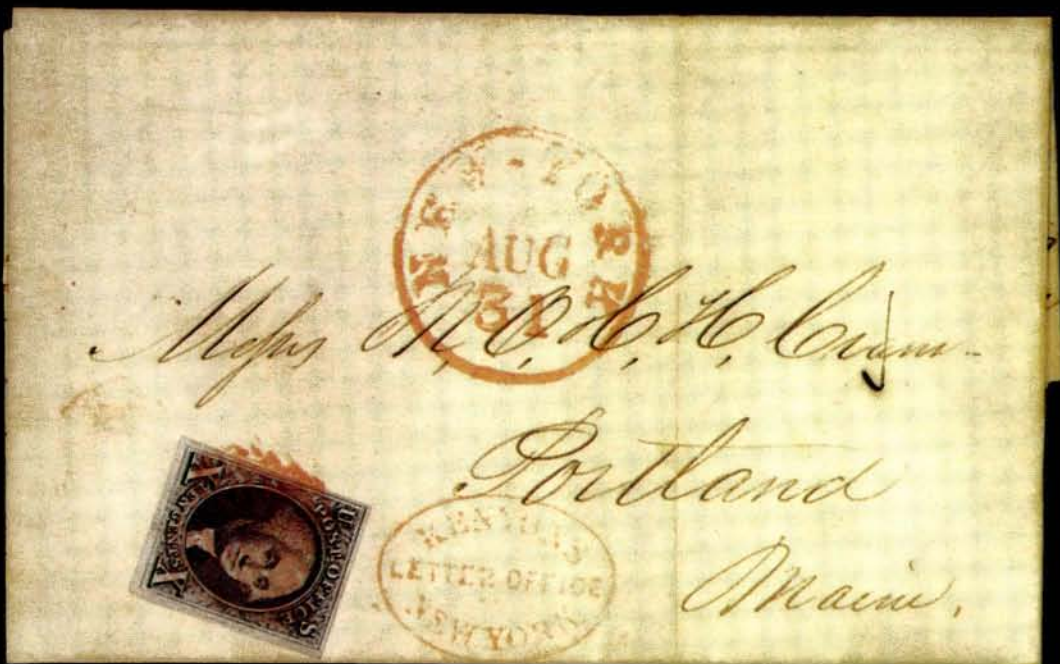 NEW-YORK
AUG
31
Messrs N. O. & C. H. Cram
Portland
Maine.
KENYON'S
LETTER OFFICE
U.S.
POST OFFICE
X TEN CENTS X